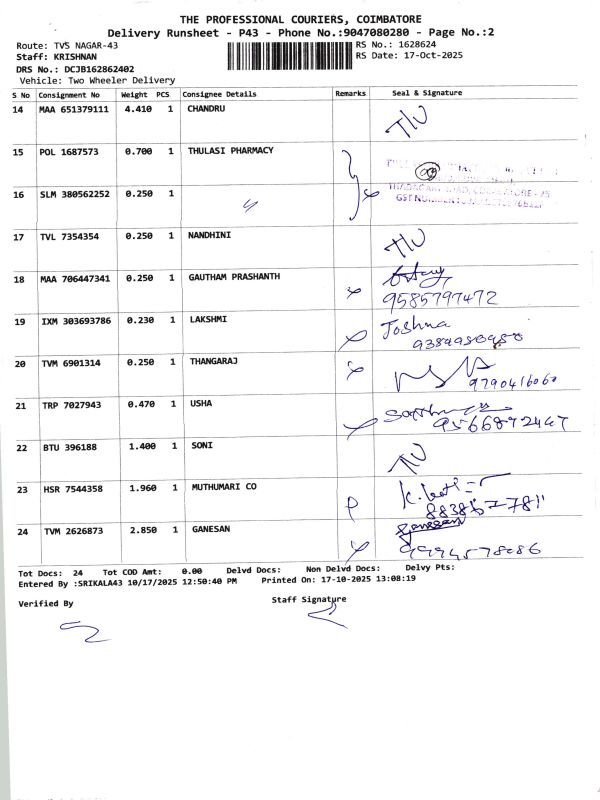 THE PROFESSIONAL COURIERS, COIMBATORE
Delivery Runsheet - P43 - Phone No.:9047080280 - Page No.:2
Route: TVS NAGAR-43
RS No.: 1628624
Staff: KRISHNAN
RS Date: 17-Oct-2025
DRS No.: DCJB162862402
Vehicle: Two Wheeler Delivery
S No Consignment No Weight PCS Consignee Details Remarks Seal & Signature
14 MAA 651379111 4.410 1 CHANDRU
15 POL 1687573 0.700 1 THULASI PHARMACY
16 SLM 380562252 0.250 1
17 TVL 7354354 0.250 1 NANDHINI
18 MAA 706447341 0.250 1 GAUTHAM PRASHANTH
9585797472
19 IXM 303693786 0.230 1 LAKSHMI Joshna
20 TVM 6901314 0.250 1 THANGARAJ
9790416060
21 TRP 7027943 0.470 1 USHA
9566872467
22 BTU 396188 1.400 1 SONI
23 HSR 7544358 1.960 1 MUTHUMARI CO
24 TVM 2626873 2.850 1 GANESAN Ganesan
Tot Docs: 24 Tot COD Amt: 0.00 Delvd Docs: Non Delvd Docs: Delvy Pts:
Entered By :SRIKALA43 10/17/2025 12:50:40 PM Printed On: 17-10-2025 13:08:19
Verified By Staff Signature